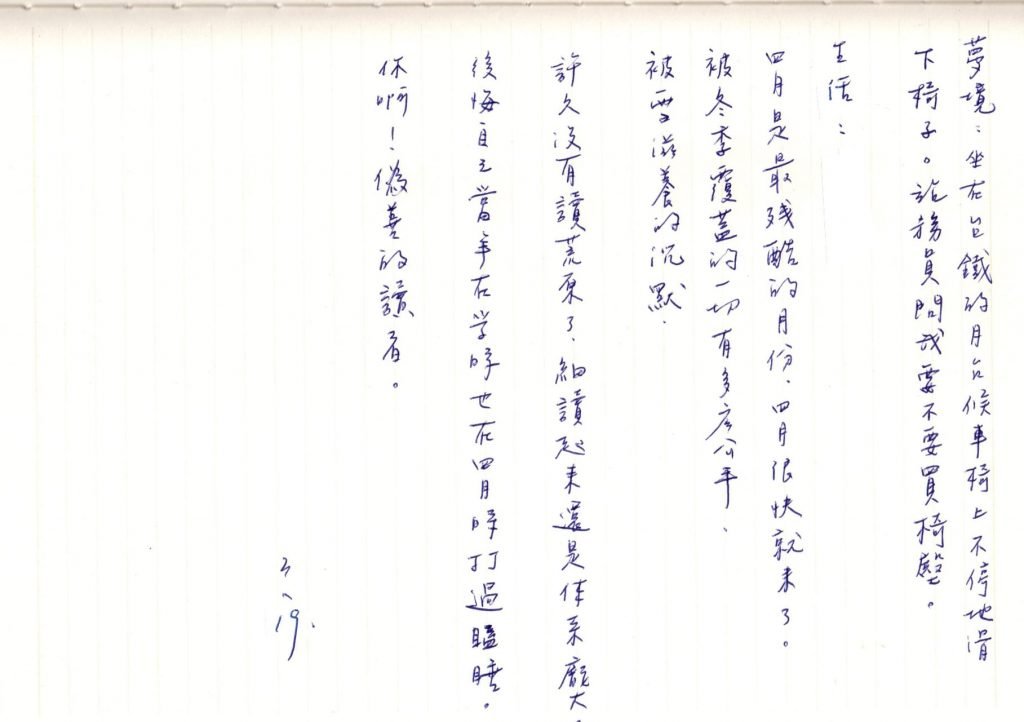 夢境：坐在台鐵的月台候車椅上不停地滑
下椅子。站務員問我要不要買椅墊。
生活：
四月是最残酷的月份．四月很快就来了。
被冬季覆蓋的一切有多広公平、
被雪滋養的沉默．
許久沒有讀荒原了、細讀起来還是体系龐大。
後悔自己當年在学時也在四月時打過瞌睡。
你啊！偽善的讀者。
3、19.